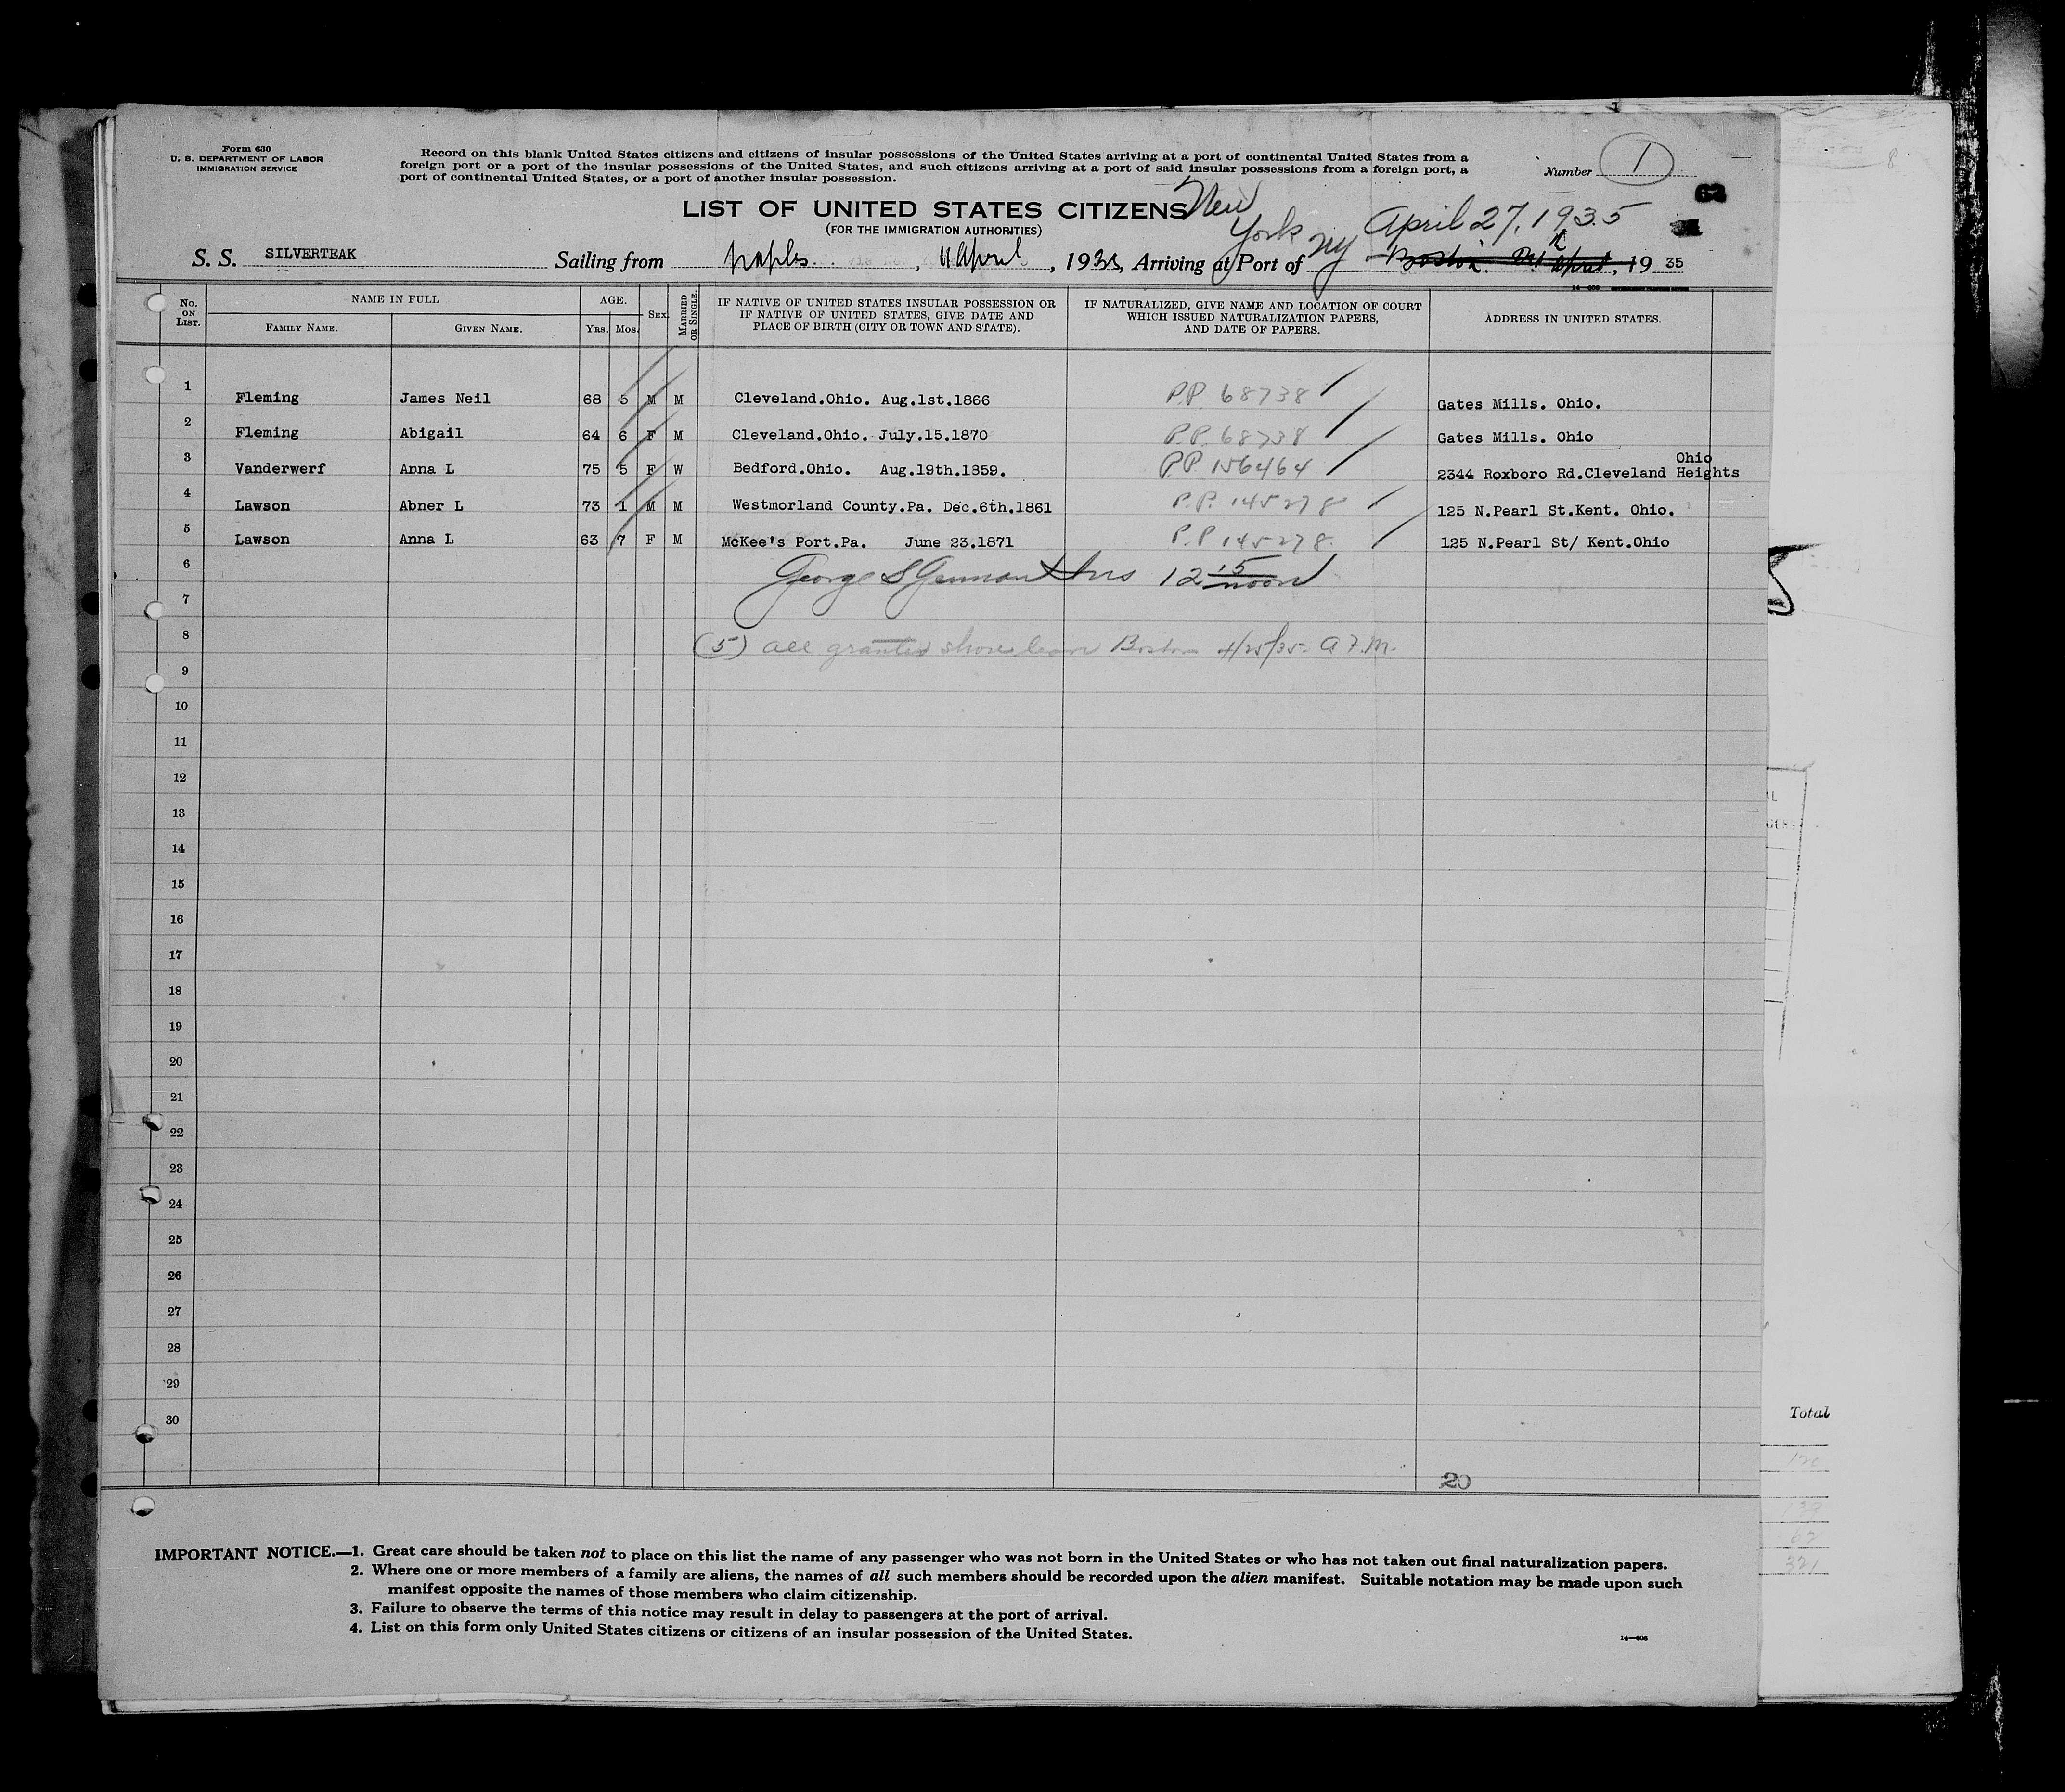 Form 630
U. S. DEPARTMENT OF LABOR
IMMIGRATION SERVICE
Record on this blank United States citizens and citizens of insular possessions of the United States arriving at a port of continental United States from a
foreign port or a port of the insular possessions of the United States, and such citizens arriving at a port of said insular possessions from a foreign port, a
port of continental United States, or a port of another insular possession.
Number 1
63
LIST OF UNITED STATES CITIZENS
(FOR THE IMMIGRATION AUTHORITIES)
New York NY April 27, 1935
S. S. SILVERTEAK Sailing from Naples. , 11 April , 193 , Arriving at Port of Boston. April , 19 35
No. ON LIST. NAME IN FULL AGE. SEX MARRIED OR SINGLE. IF NATIVE OF UNITED STATES INSULAR POSSESSION OR IF NATIVE OF UNITED STATES, GIVE DATE AND PLACE OF BIRTH (CITY OR TOWN AND STATE). IF NATURALIZED, GIVE NAME AND LOCATION OF COURT WHICH ISSUED NATURALIZATION PAPERS, AND DATE OF PAPERS. ADDRESS IN UNITED STATES.
FAMILY NAME. GIVEN NAME. Yrs. Mos.
1 Fleming James Neil 68 5 M M Cleveland.Ohio. Aug.1st.1866 P.P. 68738 Gates Mills. Ohio.
2 Fleming Abigail 64 6 F M Cleveland.Ohio. July.15.1870 P.P. 68738 Gates Mills. Ohio
3 Vanderwerf Anna L 75 5 F W Bedford.Ohio. Aug.19th.1859. P.P. 156464 2344 Roxboro Rd.Cleveland Heights Ohio
4 Lawson Abner L 73 1 M M Westmorland County.Pa. Dec.6th.1861 P.P. 145278 125 N.Pearl St.Kent. Ohio.
5 Lawson Anna L 63 7 F M McKee's Port.Pa. June 23.1871 P.P 145278. 125 N.Pearl St/ Kent.Ohio
6 George S Ins 12 15 noon
7
8 (5) all granted shore leave Boston 4/25/35- A.F.M.
9
10
11
12
13
14
15
16
17
18
19
20
21
22
23
24
25
26
27
28
29
30
20
Total
IMPORTANT NOTICE.—1. Great care should be taken not to place on this list the name of any passenger who was not born in the United States or who has not taken out final naturalization papers.
2. Where one or more members of a family are aliens, the names of all such members should be recorded upon the alien manifest. Suitable notation may be made upon such
manifest opposite the names of those members who claim citizenship.
3. Failure to observe the terms of this notice may result in delay to passengers at the port of arrival.
4. List on this form only United States citizens or citizens of an insular possession of the United States.